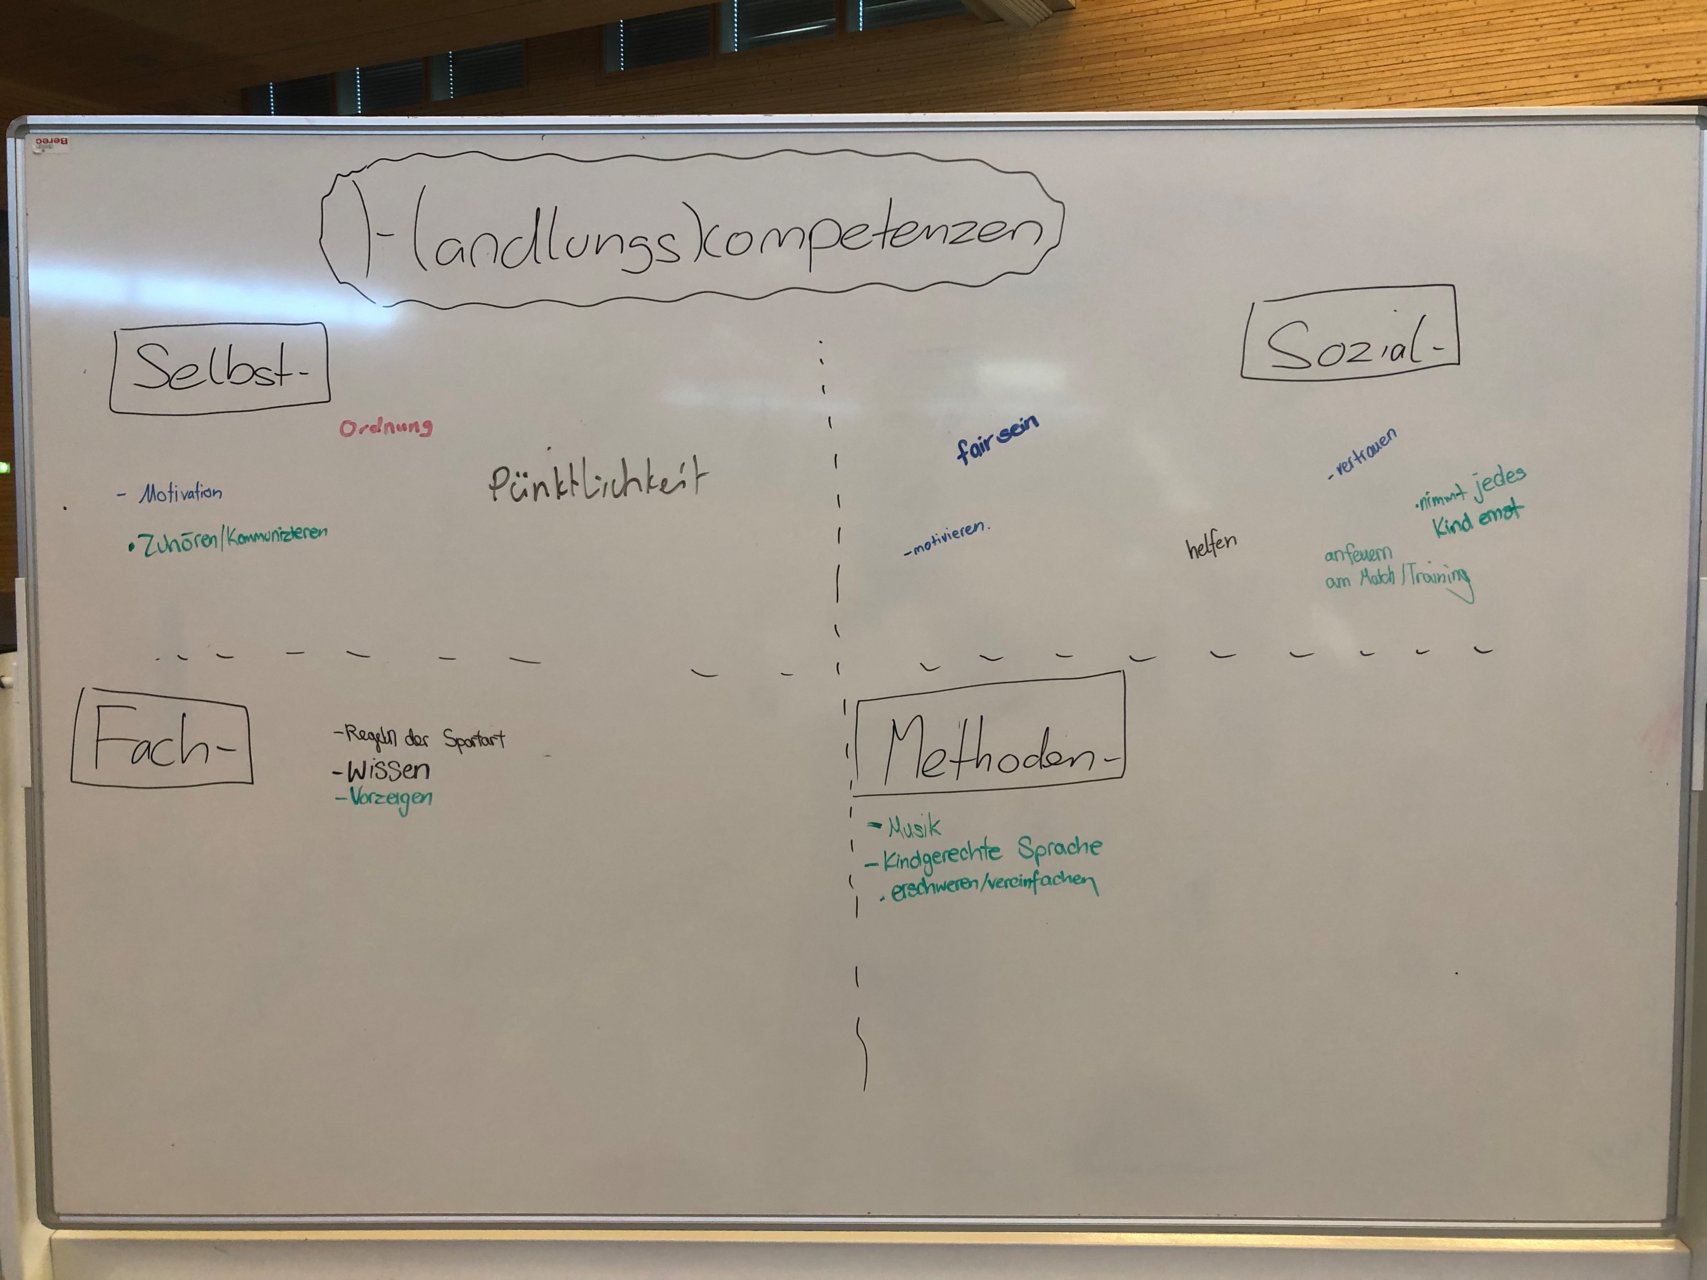 Handlungskompetenzen
Selbst-
Ordnung
Pünktlichkeit
- Motivation
• Zuhören/Kommunizieren
Sozial-
fair sein
- vertrauen
• nimmt jedes
Kind ernst
- motivieren.
helfen
anfeuern
am Match/Training
Fach-
- Regeln der Sportart
- Wissen
- Vorzeigen
Methoden-
- Musik
- Kindgerechte Sprache
• erschweren/vereinfachen
Berec